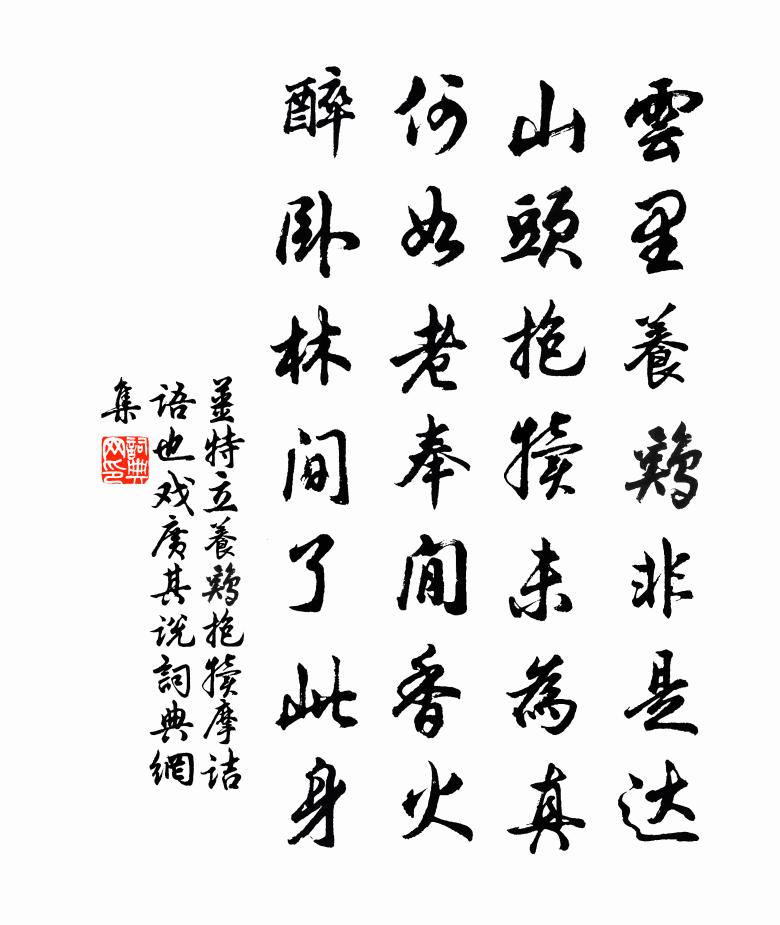 雲里養鷄非是达
山頭抱犢未為真
何如老奉閒香火
醉卧林間了此身
姜特立養鷄抱犢摩詰
語也戏廣其说詞典網
集
詞典网印